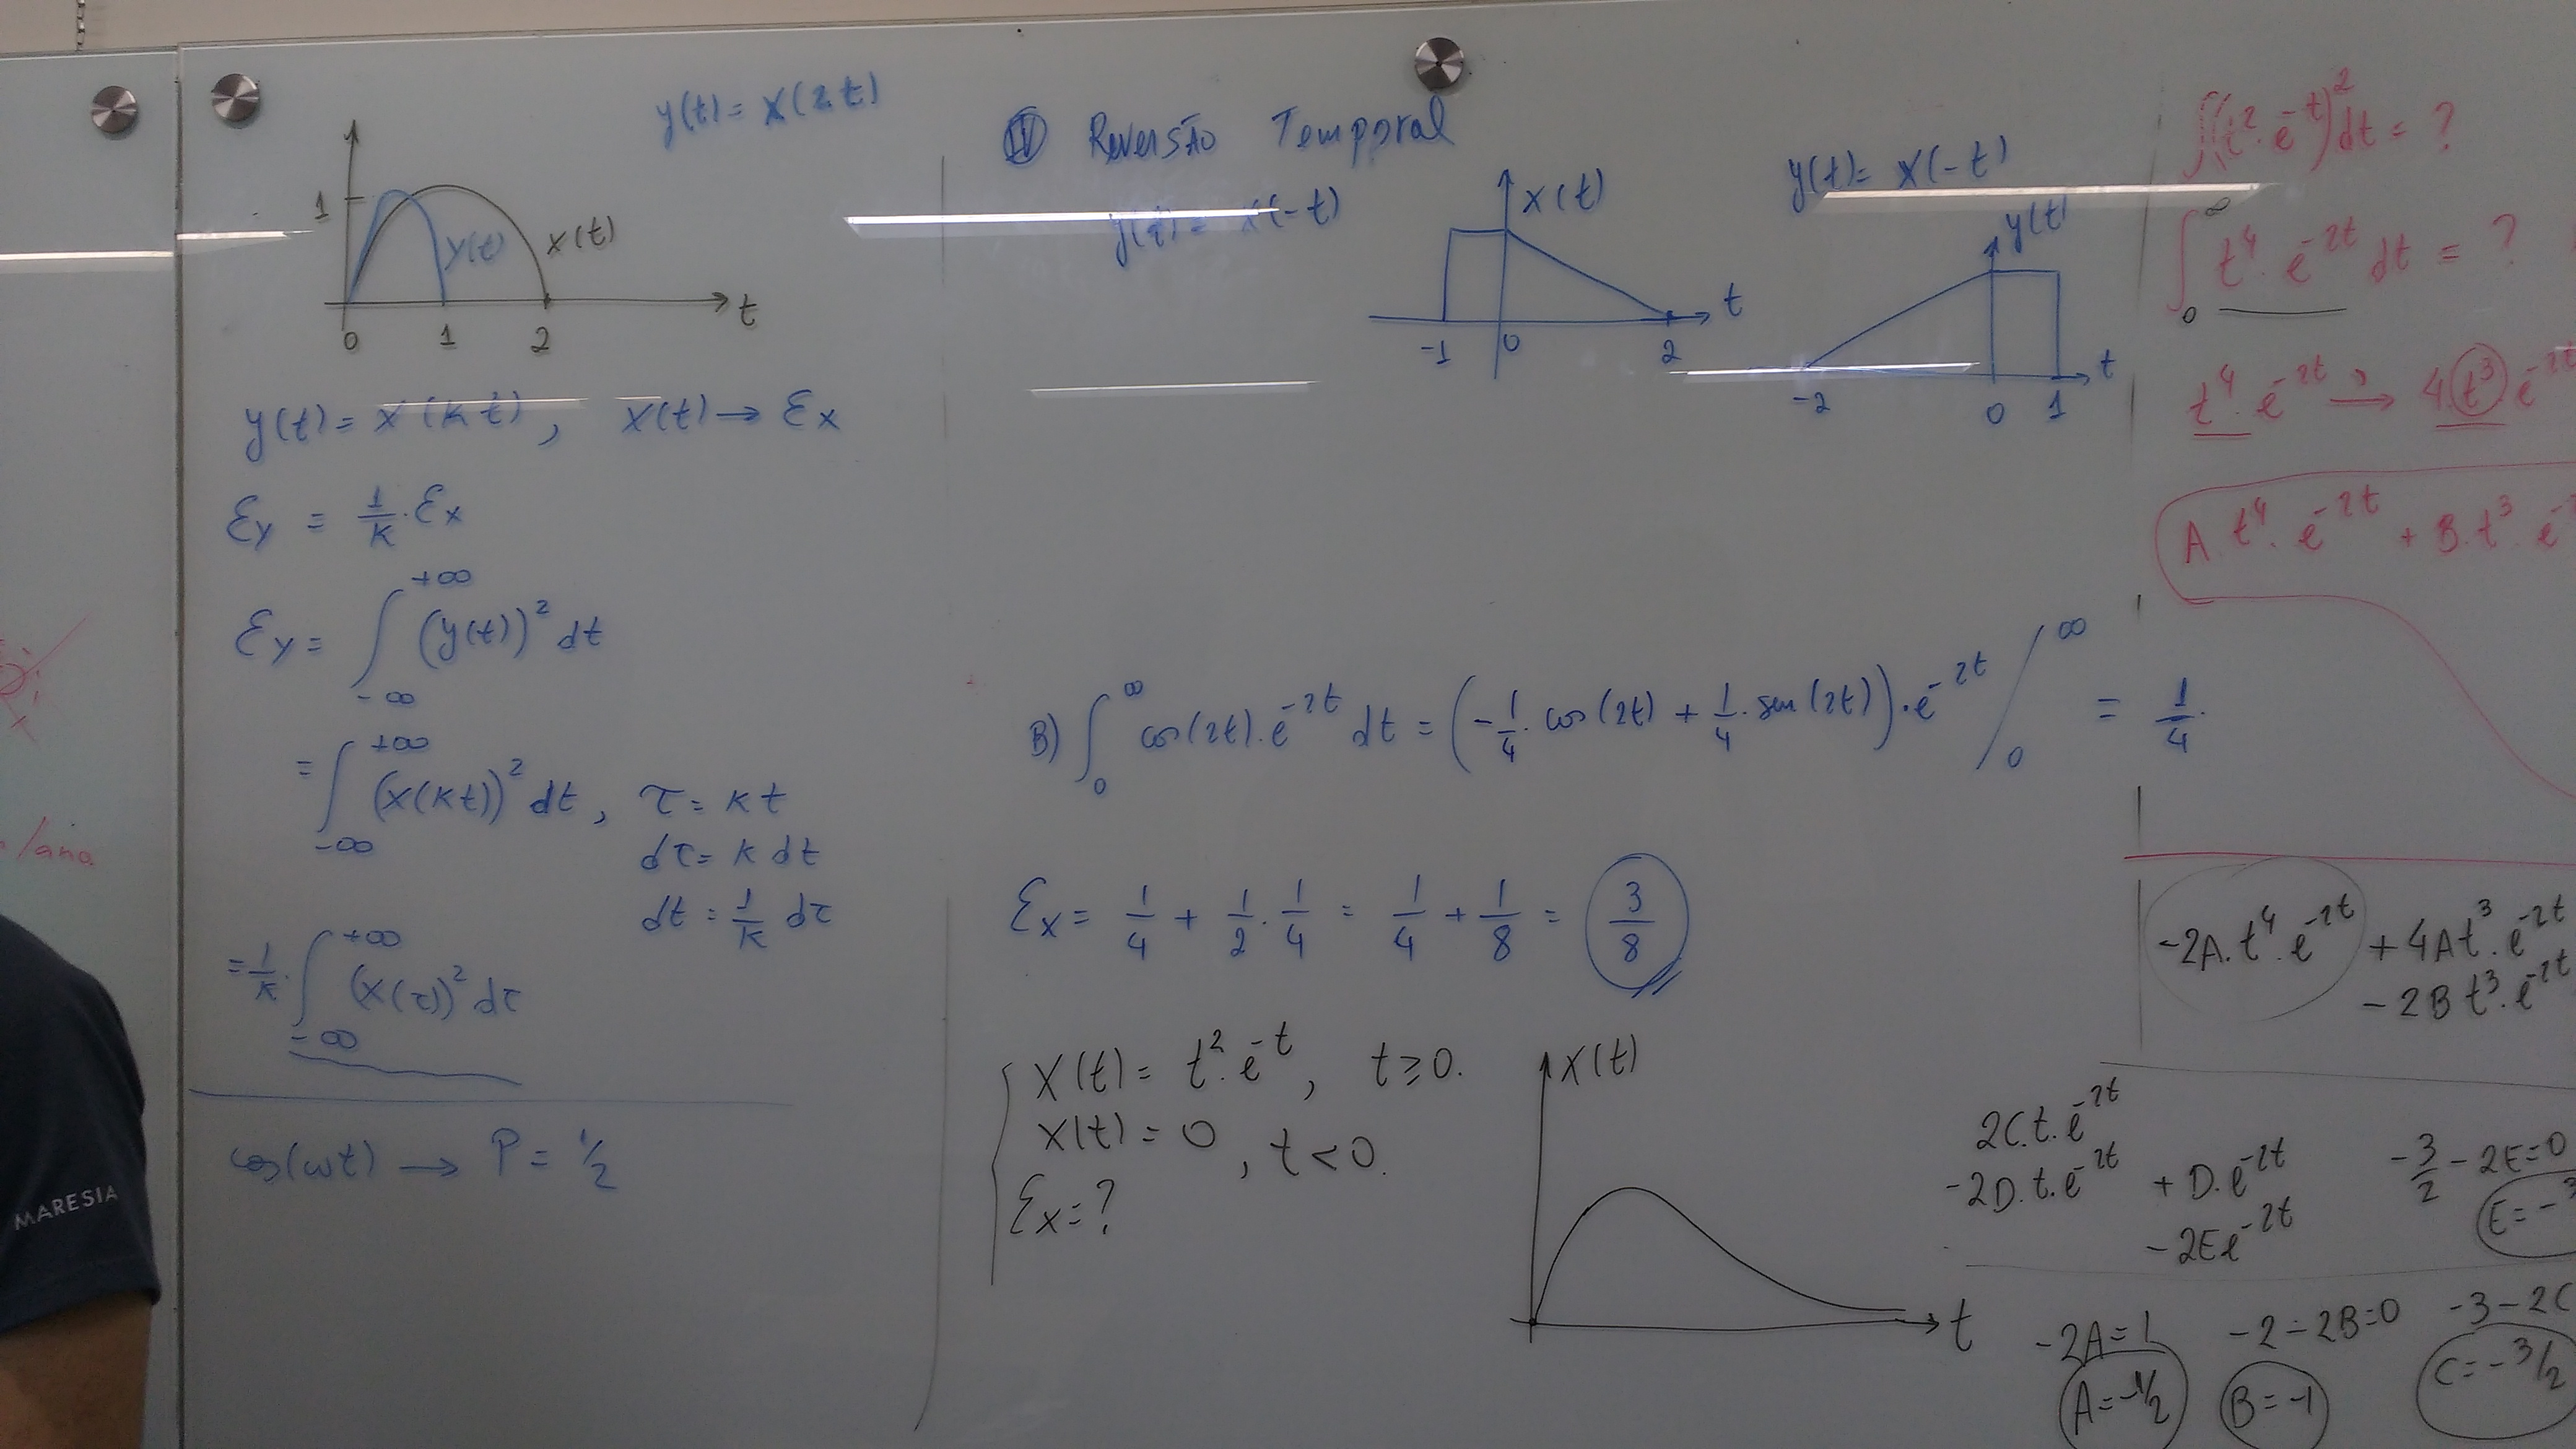 y(t) = x(2t)
1
y(t)
x(t)
0 1 2
t
y(t) = x(kt), x(t) → Ɛx
Ɛy = 1/k · Ɛx
Ɛy = ∫_{-∞}^{+∞} (y(t))² dt
= ∫_{-∞}^{+∞} (x(kt))² dt, τ = kt
dτ = k dt
dt = 1/k dτ
= 1/k · ∫_{-∞}^{+∞} (x(τ))² dτ
cos(ωt) → P = 1/2
MARESIA
/ana
IV Reversão Temporal
y(t) = x(-t)
x(t)
t
-1 0 2
y(t) = x(-t)
y(t)
t
-2 0 1
B) ∫_0^∞ cos(2t) · e^{-2t} dt = (-1/4 · cos(2t) + 1/4 · sen(2t)) · e^{-2t} /_0^∞ = 1/4 ·
Ɛx = 1/4 + 1/2 · 1/4 = 1/4 + 1/8 = 3/8
x(t) = t² · e^{-t}, t ≥ 0.
x(t) = 0, t < 0.
Ɛx = ?
x(t)
t
∫(t² · e^{-t})² dt = ?
∫_0^∞ t⁴ · e^{-2t} dt = ?
t⁴ · e^{-2t} → 4 t³ e^{-2t}
A · t⁴ · e^{-2t} + B · t³ · e
-2A · t⁴ · e^{-2t} + 4At³ · e^{-2t}
-2B t³ · e^{-2t}
2C · t · e^{-2t}
-2D · t · e^{-2t} + D · e^{-2t}
-2E e^{-2t}
-3/2 - 2E = 0
E = -
-2A = 1
A = -1/2
-2 - 2B = 0
B = -1
-3 - 2C
C = -3/2